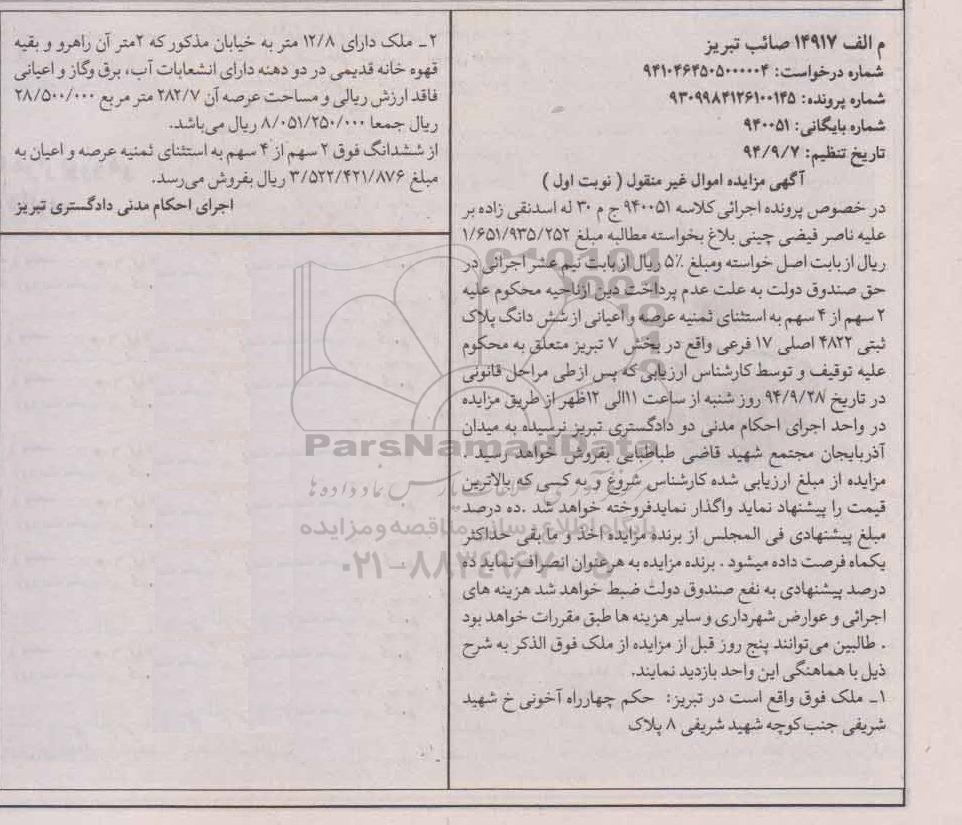 م الف ۱۴۹۱۷ صائب تبریز
شماره درخواست: ۹۴۱۰۴۶۴۵۰۵۰۰۰۰۰۴
شماره پرونده: ۹۳۰۹۹۸۴۱۲۶۱۰۰۱۴۵
شماره بایگانی: ۹۴۰۰۵۱
تاریخ تنظیم: ۹۴/۹/۷
آگهی مزایده اموال غیر منقول ( نوبت اول )
در خصوص پرونده اجرائی کلاسه ۹۴۰۰۵۱ ج م ۳۰ له اسدنقی زاده بر
علیه ناصر فیضی چینی بلاغ بخواسته مطالبه مبلغ ۱/۶۵۱/۹۳۵/۲۵۲
ریال از بابت اصل خواسته ومبلغ ۵٪ ریال از بابت نیم عشر اجرائی در
حق صندوق دولت به علت عدم پرداخت دین ازناحیه محکوم علیه
۲ سهم از ۴ سهم به استثنای ثمنیه عرصه و اعیانی از شش دانگ پلاک
ثبتی ۴۸۲۲ اصلی ۱۷ فرعی واقع در بخش ۷ تبریز متعلق به محکوم
علیه توقیف و توسط کارشناس ارزیابی که پس ازطی مراحل قانونی
در تاریخ ۹۴/۹/۲۸ روز شنبه از ساعت ۱۱الی ۱۲ظهر از طریق مزایده
در واحد اجرای احکام مدنی دو دادگستری تبریز نرسیده به میدان
آذربایجان مجتمع شهید قاضی طباطبایی بفروش خواهد رسید .
مزایده از مبلغ ارزیابی شده کارشناس شروع و به کسی که بالاترین
قیمت را پیشنهاد نماید واگذار نمایدفروخته خواهد شد .ده درصد
مبلغ پیشنهادی فی المجلس از برنده مزایده اخذ و مابقی حداکثر
یکماه فرصت داده میشود . برنده مزایده به هرعنوان انصراف نماید ده
درصد پیشنهادی به نفع صندوق دولت ضبط خواهد شد هزینه های
اجرائی و عوارض شهرداری و سایر هزینه ها طبق مقررات خواهد بود
. طالبین می‌توانند پنج روز قبل از مزایده از ملک فوق الذکر به شرح
ذیل با هماهنگی این واحد بازدید نمایند.
۱ـ ملک فوق واقع است در تبریز: حکم چهارراه آخونی خ شهید
شریفی جنب کوچه شهید شریفی ۸ پلاک
۲ـ ملک دارای ۱۲/۸ متر به خیابان مذکور که ۲متر آن راهرو و بقیه
قهوه خانه قدیمی در دو دهنه دارای انشعابات آب، برق وگاز و اعیانی
فاقد ارزش ریالی و مساحت عرصه آن ۲۸۲/۷ متر مربع ۲۸/۵۰۰/۰۰۰
ریال جمعا ۸/۰۵۱/۲۵۰/۰۰۰ ریال می‌باشد.
از ششدانگ فوق ۲ سهم از ۴ سهم به استثنای ثمنیه عرصه و اعیان به
مبلغ ۳/۵۲۲/۴۲۱/۸۷۶ ریال بفروش می‌رسد.
اجرای احکام مدنی دادگستری تبریز
ParsNamadData
پایگاه اطلاع رسانی مناقصه و مزایده
۰۲۱-۸۸۳۴۹۶۷۰-۵